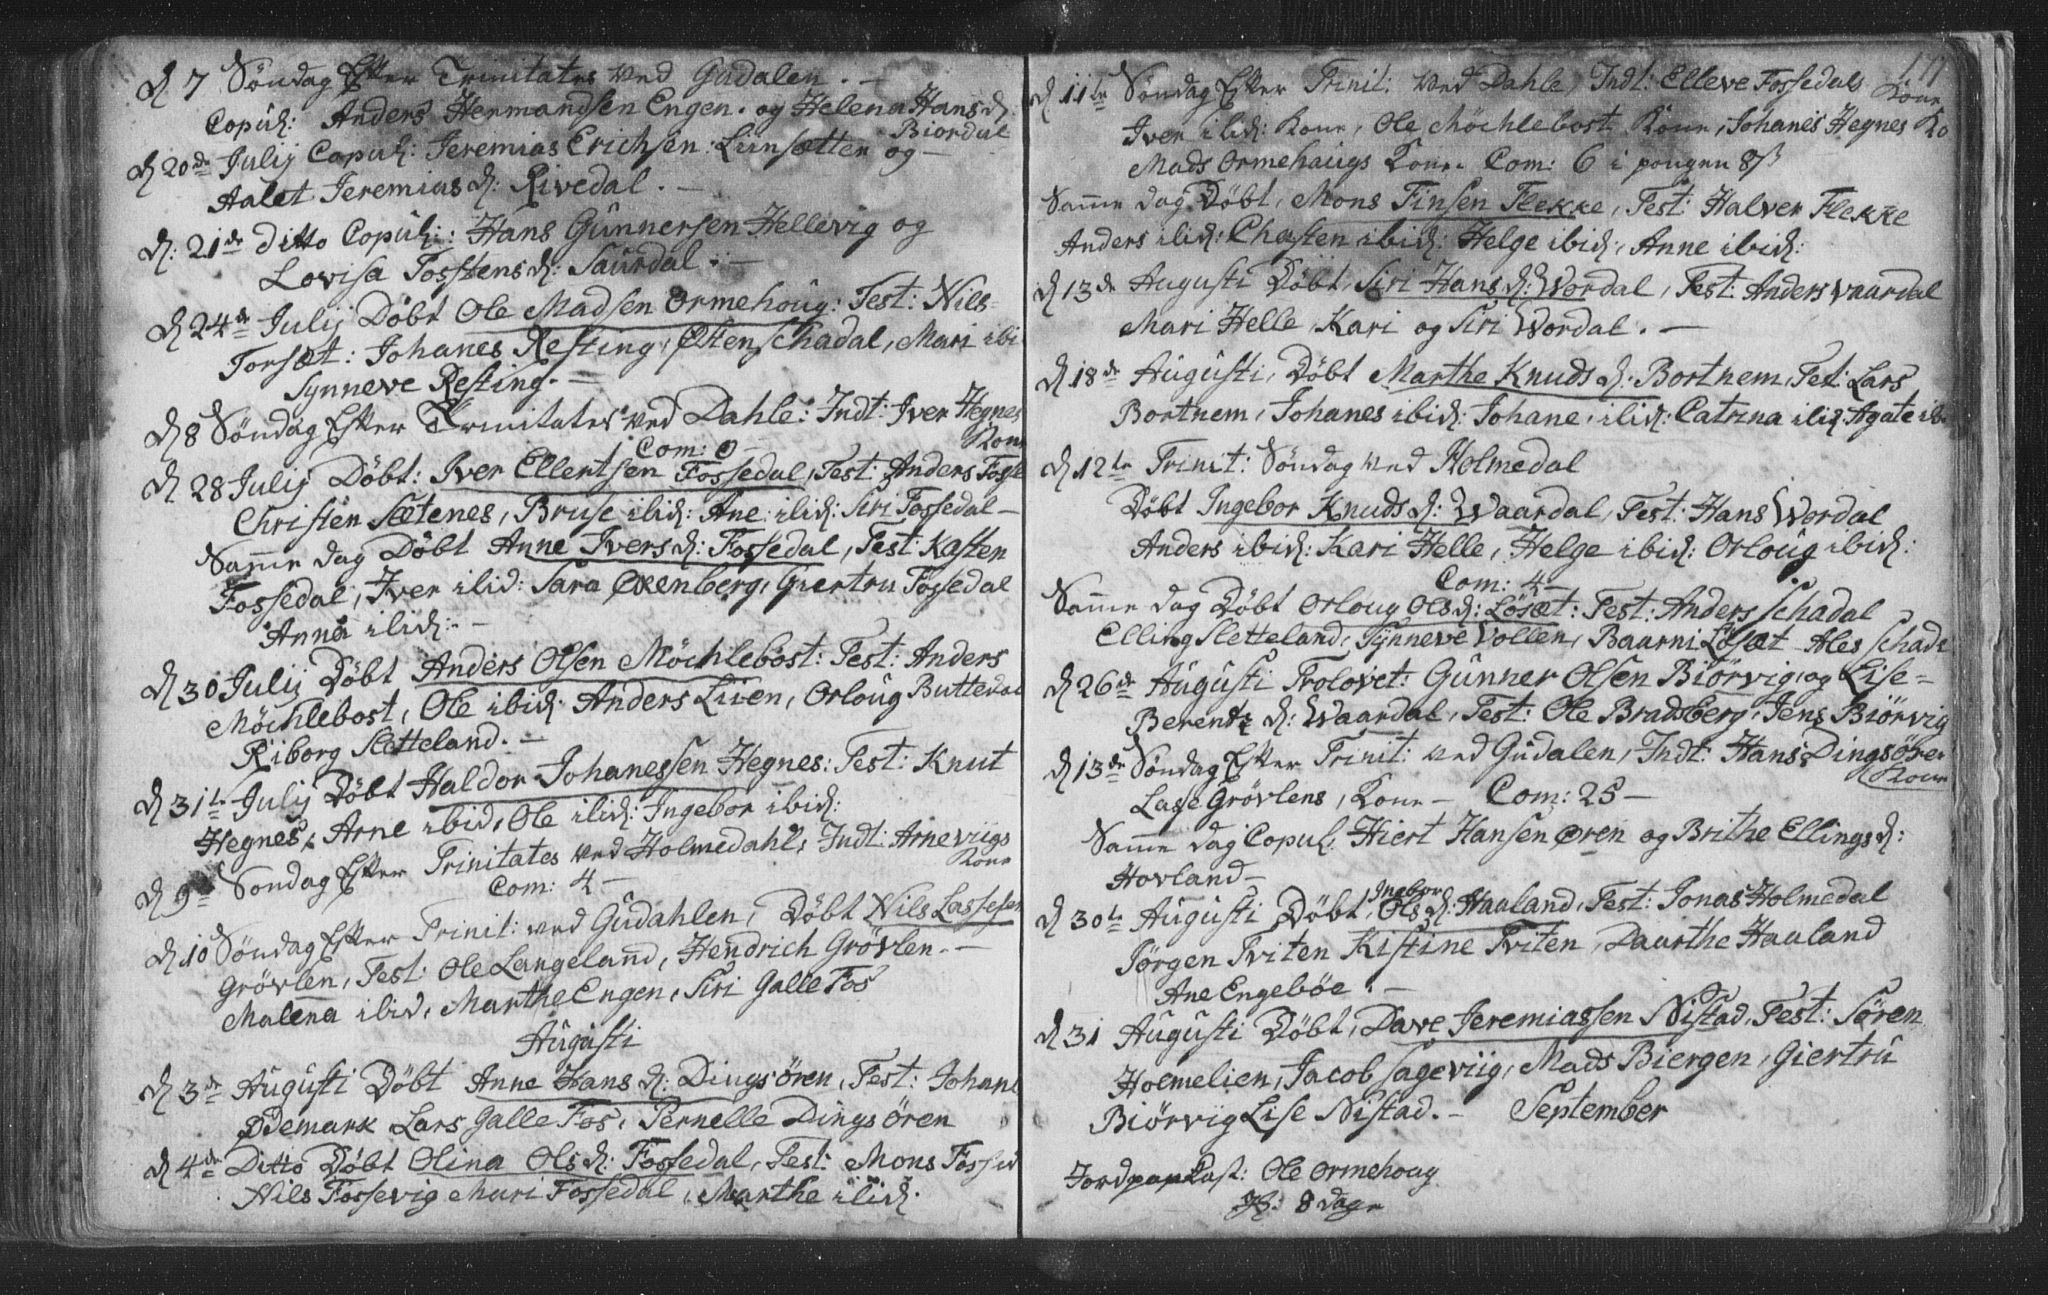 D 7 Söndag Efter Trinitates ved Gudalen. –
Copul: Anders Hermandsen Engen. og Helena Hans D:
Biordal
D 20de Julij Copul: Jeremias Erichsen: Liinsætten og –
Aalet Jeremias D: Rivedal. –
D: 21de ditto Copul: Hans Gunnersen Hellevig og
Lovisa Torstens D: Saurdal. –
D 24de Julij Döbt Ole Madsen Ormehoug: Test: Nils
Torsæt: Johanes Resting, Östen Schadal, Mari ibi
Synneve Resting. –
D 8 Söndag Efter Trinitates ved Dahle: Indt: Iver Hegnes
Kone
Com: 0
D 28 Julij Döbt: Iver Ellertsen Fossedal, Test: Anders Fosse
Christen Sætenes, Bruse ibid: Ane: ibid: Siri Fossedal –
Samme dag Döbt Anne Ivers D: Fossedal, Test: Kasten
Fossedal, Iver ibid: Sara Oxenberg, Giertru Fossedal
Anna ibid: –
D 30 Julij Döbt Anders Olsen Möchlebost: Test: Anders
Möchlebost, Ole ibid: Anders Liien, Orloug Buttedal
Riborg Sletteland. –
D 31te Julij Döbt Haldor Johanessen Hegnes: Test: Knut
Hegnes, Arne ibid, Ole ibid: Ingebor ibid:
D 9de Söndag Efter Trinitates ved Holmedahl, Indt: Arne viigs
Kone
Com: 4 –
D 10 Söndag Efter Trinit: ved Gudahlen, Döbt Nils Lassesen
Grövlen, Test: Ole Langeland, Hendrich Grövlen. –
Malena ibid, Marthe Engen, Siri Galle Fos
Augusti
D 3de Augusti Döbt Anne Hans D: Dingsören, Test: Johane
Ødemark Lars Galle Fos, Pernelle Dingsören
D 4de Ditto Döbt Olina Ols D: Fossedal, Test: Mons Fossed
Nils Fossevig Mari Fossedal, Marthe ibid:
177
D 11te Söndag Efter Trinit: ved Dahle, Indt: Elleve Fossedals Kone
Iver ibid: Kone, Ole Möchlebost Kone, Johanes Hegnes Ko
Mads Ormehaugs Kone. Com: 6 i pongen 8 ß
Samme dag Döbt, Mons Finsen Flekke, Test: Halver Flekke
Anders ibid: Chasten ibid: Helge ibid:, Anne ibid:
D 13de Augusti Döbt, Siri Hans D: Wordal, Test: Anders Vaardal
Mari Helle, Kari og Siri Wordal. –
D 18de Augusti, Döbt Marthe Knuds D: Bortnem, Test: Lars
Bortnem, Johanes ibid: Johane, ibid: Catrina ibid: Agate ib
D 12te Trinit: Söndag ved Holmedal
Döbt Ingebor Knuds D: Waardal, Test: Hans Wordal
Anders ibid: Kari Helle, Helge ibid: Orloug ibid:
Com: 4 –
Samme dag Döbt Orloug Ols D: Lösæt: Test: Anders Schadal
Elling Sletteland, Synneve Vollen, Baarni Lösæt Ales Schadl
D 26de Augusti Trolovet: Gunner Olsen Biörvig, og Lise –
Berentz D: Waardal, Test: Ole Bradsberg, Jens Biörvig
D 13de Söndag Efter Trinit: ved Gudalen, Indt: Hans Dingsören
Kone
Lasse Grövlens, Kone – Com: 25 –
Samme dag Copul: Hiert Hansen Øren og Brithe Ellings D:
Hovland –
Ingebor
D 30te Augusti Döbt, Ols D: Haaland, Test: Jonas Holmedal
Jörgen Tviten Kistine Tviten, Daarthe Haaland
Ane Engeböe. –
D 31 Augusti Döbt, Dave Jeremiassen Nistad, Test: Sören
Holmelien, Jacob Sageviig, Mads Biergen, Giertru
Biörvig Lise Nistad. – September
Jordpaakast: Ole Ormehoug
8 dage